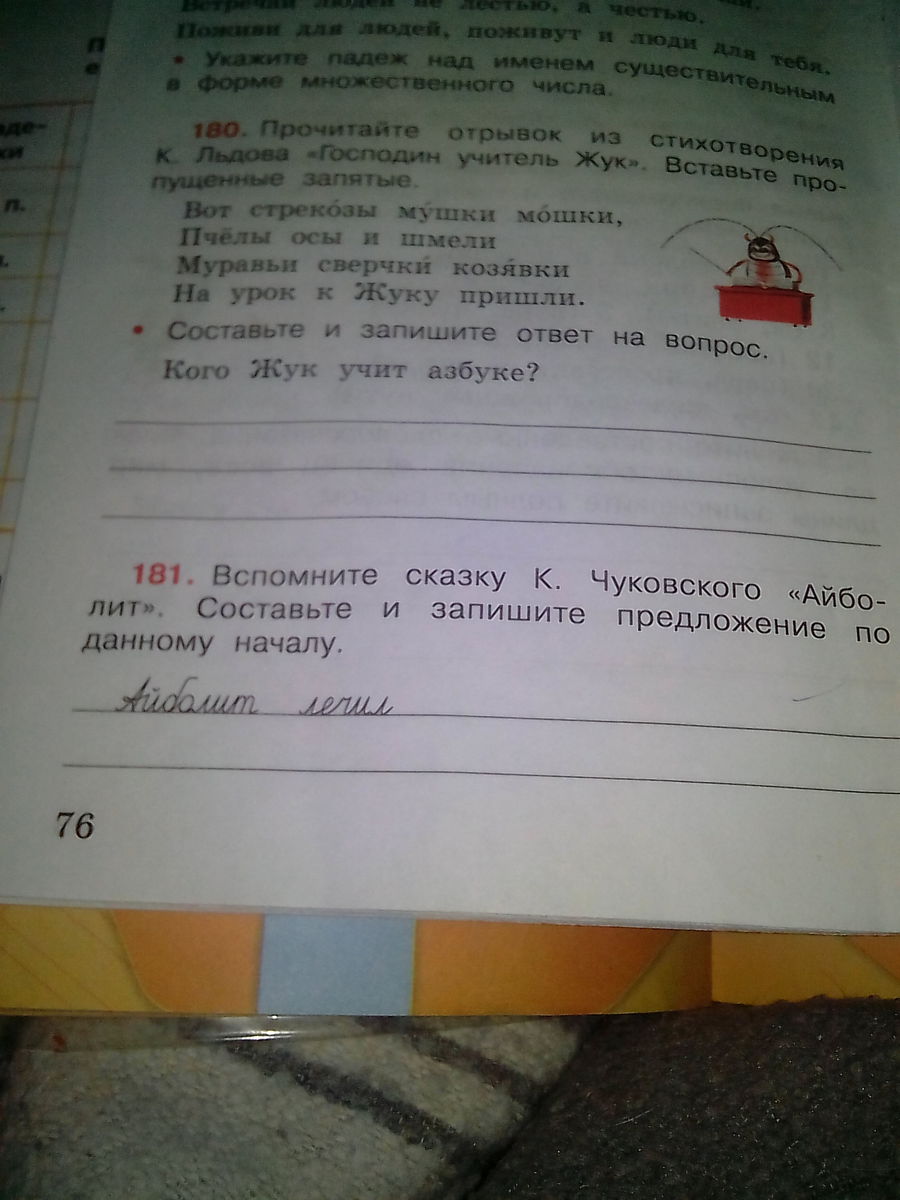 Встречай людей не лестью, а честью.
Поживи для людей, поживут и люди для тебя.
• Укажите падеж над именем существительным
в форме множественного числа.
180. Прочитайте отрывок из стихотворения
К. Льдова «Господин учитель Жук». Вставьте про-
пущенные запятые.
Вот стреко́зы му́шки мо́шки,
Пчёлы осы и шмели
Муравьи сверчки́ козя́вки
На урок к Жуку пришли.
• Составьте и запишите ответ на вопрос.
Кого Жук учит азбуке?
181. Вспомните сказку К. Чуковского «Айбо-
лит». Составьте и запишите предложение по
данному началу.
Айболит лечил
76